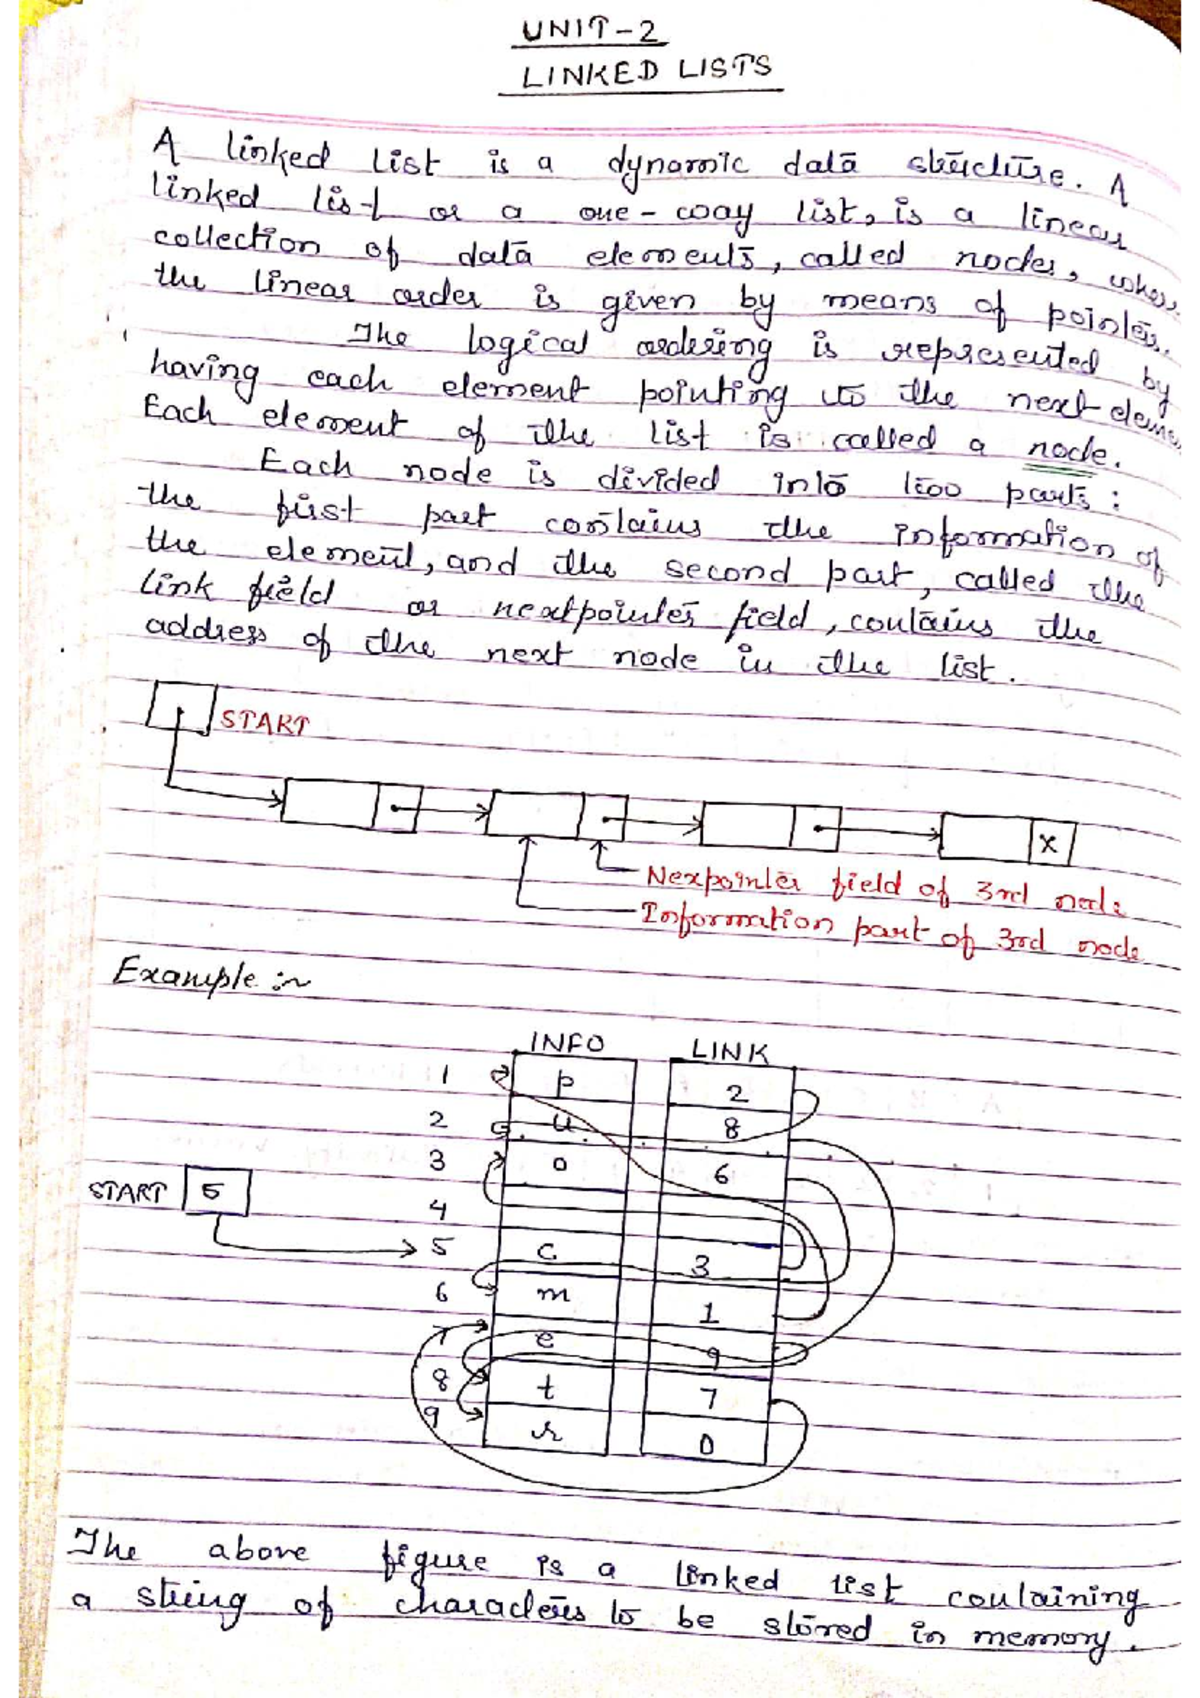 UNIT-2
LINKED LISTS
A linked list is a dynamic data structure. A
linked list or a one-way list, is a linear
collection of data elements, called nodes, where
the linear order is given by means of pointers.
The logical ordering is represented by
having each element pointing to the next eleme
Each element of the list is called a node.
Each node is divided into two parts:
the first part contains the information of
the element, and the second part, called the
link field or nextpointer field, contains the
address of the next node in the list.
START
X
Nexpointer field of 3rd node
Information part of 3rd node
Example :~
INFO LINK
1 p 2
2 u 8
3 o 6
START 5
4
5 c 3
6 m 1
7 e 9
8 t 7
9 r 0
The above figure is a linked list containing
a string of characters to be stored in memory.